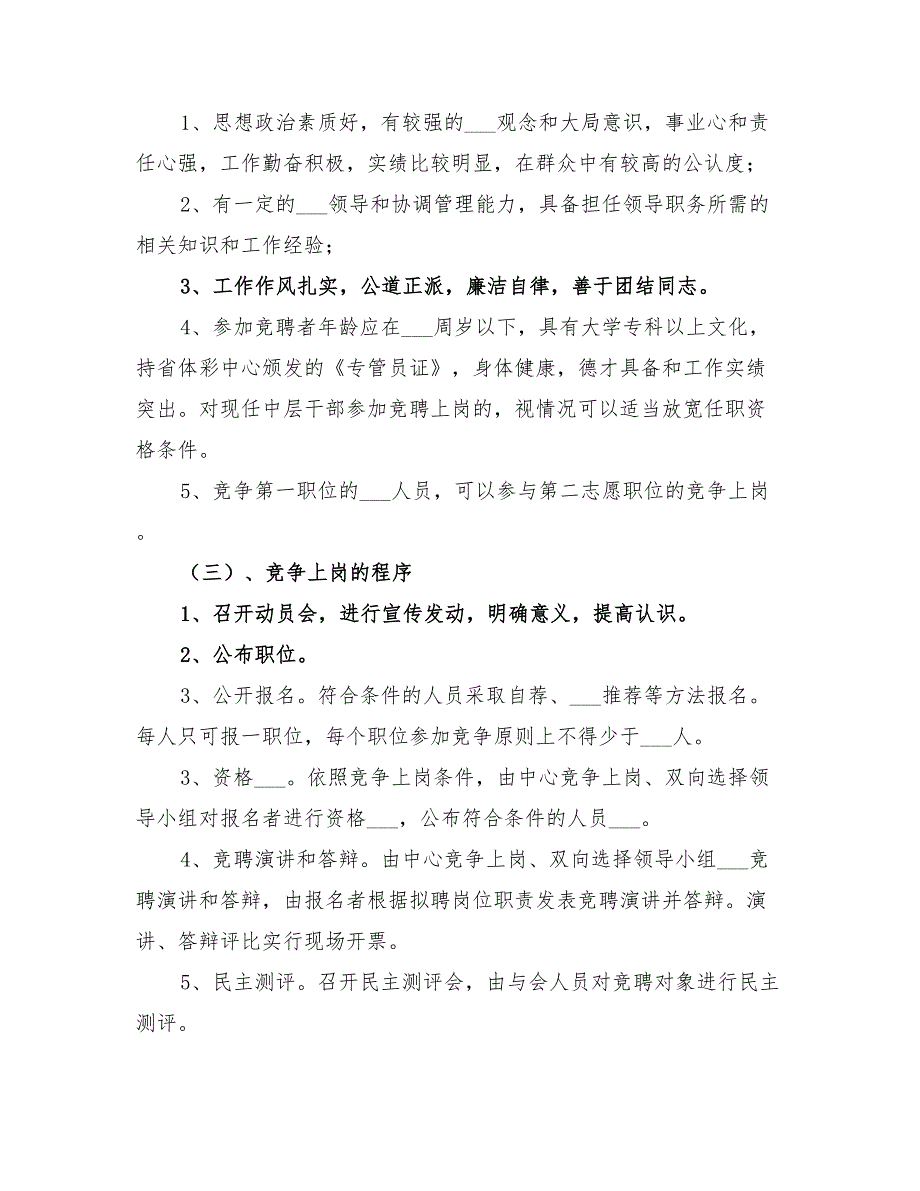 1、思想政治素质好，有较强的___观念和大局意识，事业心和责
任心强，工作勤奋积极，实绩比较明显，在群众中有较高的公认度；
2、有一定的___领导和协调管理能力，具备担任领导职务所需的
相关知识和工作经验；
3、工作作风扎实，公道正派，廉洁自律，善于团结同志。
4、参加竞聘者年龄应在___周岁以下，具有大学专科以上文化，
持省体彩中心颁发的《专管员证》，身体健康，德才具备和工作实绩
突出。对现任中层干部参加竞聘上岗的，视情况可以适当放宽任职资
格条件。
5、竞争第一职位的___人员，可以参与第二志愿职位的竞争上岗
。
（三）、竞争上岗的程序
1、召开动员会，进行宣传发动，明确意义，提高认识。
2、公布职位。
3、公开报名。符合条件的人员采取自荐、___推荐等方法报名。
每人只可报一职位，每个职位参加竞争原则上不得少于___人。
3、资格___。依照竞争上岗条件，由中心竞争上岗、双向选择领
导小组对报名者进行资格___，公布符合条件的人员___。
4、竞聘演讲和答辩。由中心竞争上岗、双向选择领导小组___竞
聘演讲和答辩，由报名者根据拟聘岗位职责发表竞聘演讲并答辩。演
讲、答辩评比实行现场开票。
5、民主测评。召开民主测评会，由与会人员对竞聘对象进行民主
测评。